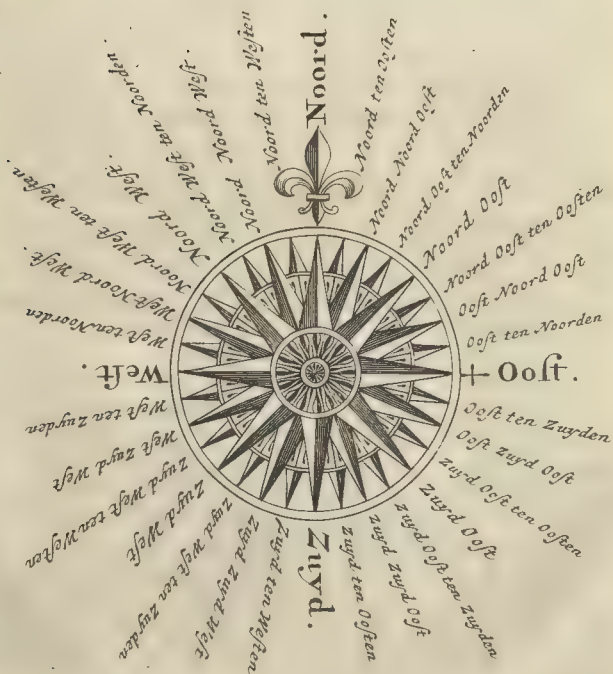 Noord.
Noord ten Ooſten
Noord Noord Ooſt
Noord Ooſt ten Noorden
Noord Ooſt
Noord Ooſt ten Ooſten
Ooſt Noord Ooſt
Ooſt ten Noorden
Ooſt.
Ooſt ten Zuyden
Ooſt Zuyd Ooſt
Zuyd Ooſt ten Ooſten
Zuyd Ooſt
Zuyd Ooſt ten Zuyden
Zuyd Zuyd Ooſt
Zuyd ten Ooſten
Zuyd.
Zuyd ten Weſten
Zuyd Zuyd Weſt
Zuyd Weſt ten Zuyden
Zuyd Weſt
Zuyd Weſt ten Weſten
Weſt Zuyd Weſt
Weſt ten Zuyden
Weſt.
Weſt ten Noorden
Weſt Noord Weſt.
Noord Weſt ten Weſten
Noord Weſt.
Noord Weſt ten Noorden.
Noord Noord Weſt.
Noord ten Weſten